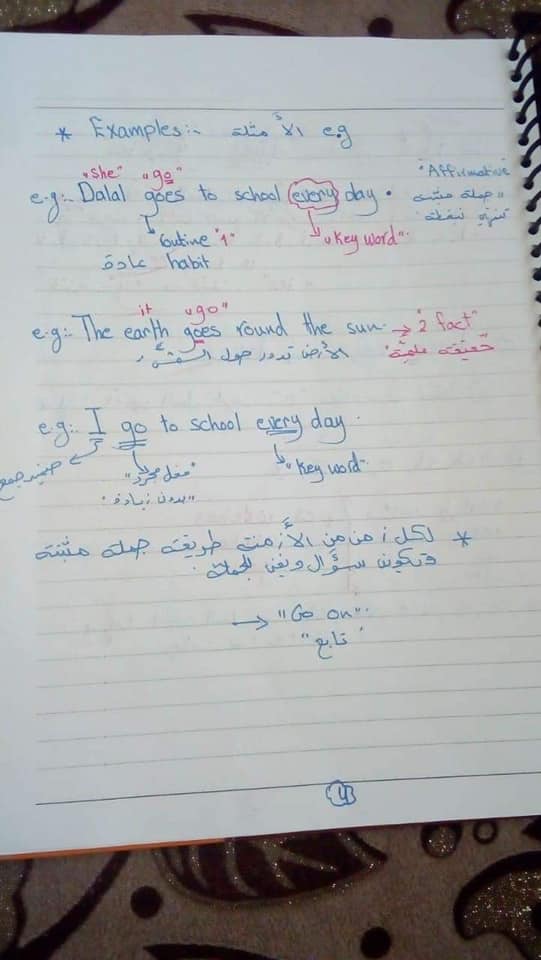 * Examples:- الأمثلة e.g
"she" "go" "Affirmative
e.g:- Dalal goes to school every day. "جملة مثبتة
تنتهي بنقطة.
Routine "1" "Key word".
عادة habit
it "go"
e.g:- The earth goes round the sun. → 2 fact"
الأرض تدور حول الشمس حقيقة علمية.
e.g:- I go to school every day.
ضمير جمع "فعل مجرد" "Key word".
"بدون زيادة".
* لكل زمن من الأزمنة طريقة جملة مثبتة
وتكوين سؤال ونفي للجملة.
→ "Go on".
"تابع"
4